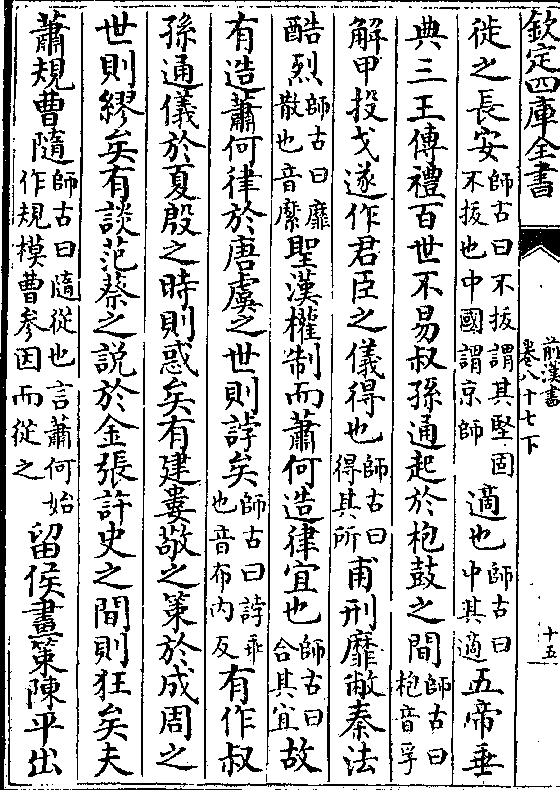 欽定四庫全書
前漢書
卷八十七下
十五
徙之長安師古曰不拔謂其堅固不拔也中國謂京師適也師古曰中其適五帝垂
典三王傳禮百世不易叔孫通起於枹鼓之間師古曰枹音孚
解甲投戈遂作君臣之儀得也師古曰得其所甫刑靡敝秦法
酷烈師古曰靡散也音縻聖漢權制而蕭何造律宜也師古曰合其宜故
有造蕭何律於唐虞之世則誖矣師古曰誖乖也音布內反有作叔
孫通儀於夏殷之時則惑矣有建婁敬之策於成周之
世則繆矣有談范蔡之說於金張許史之間則狂矣夫
蕭規曹隨師古曰隨從也言蕭何始作規模曹參因而從之留侯畫策陳平出